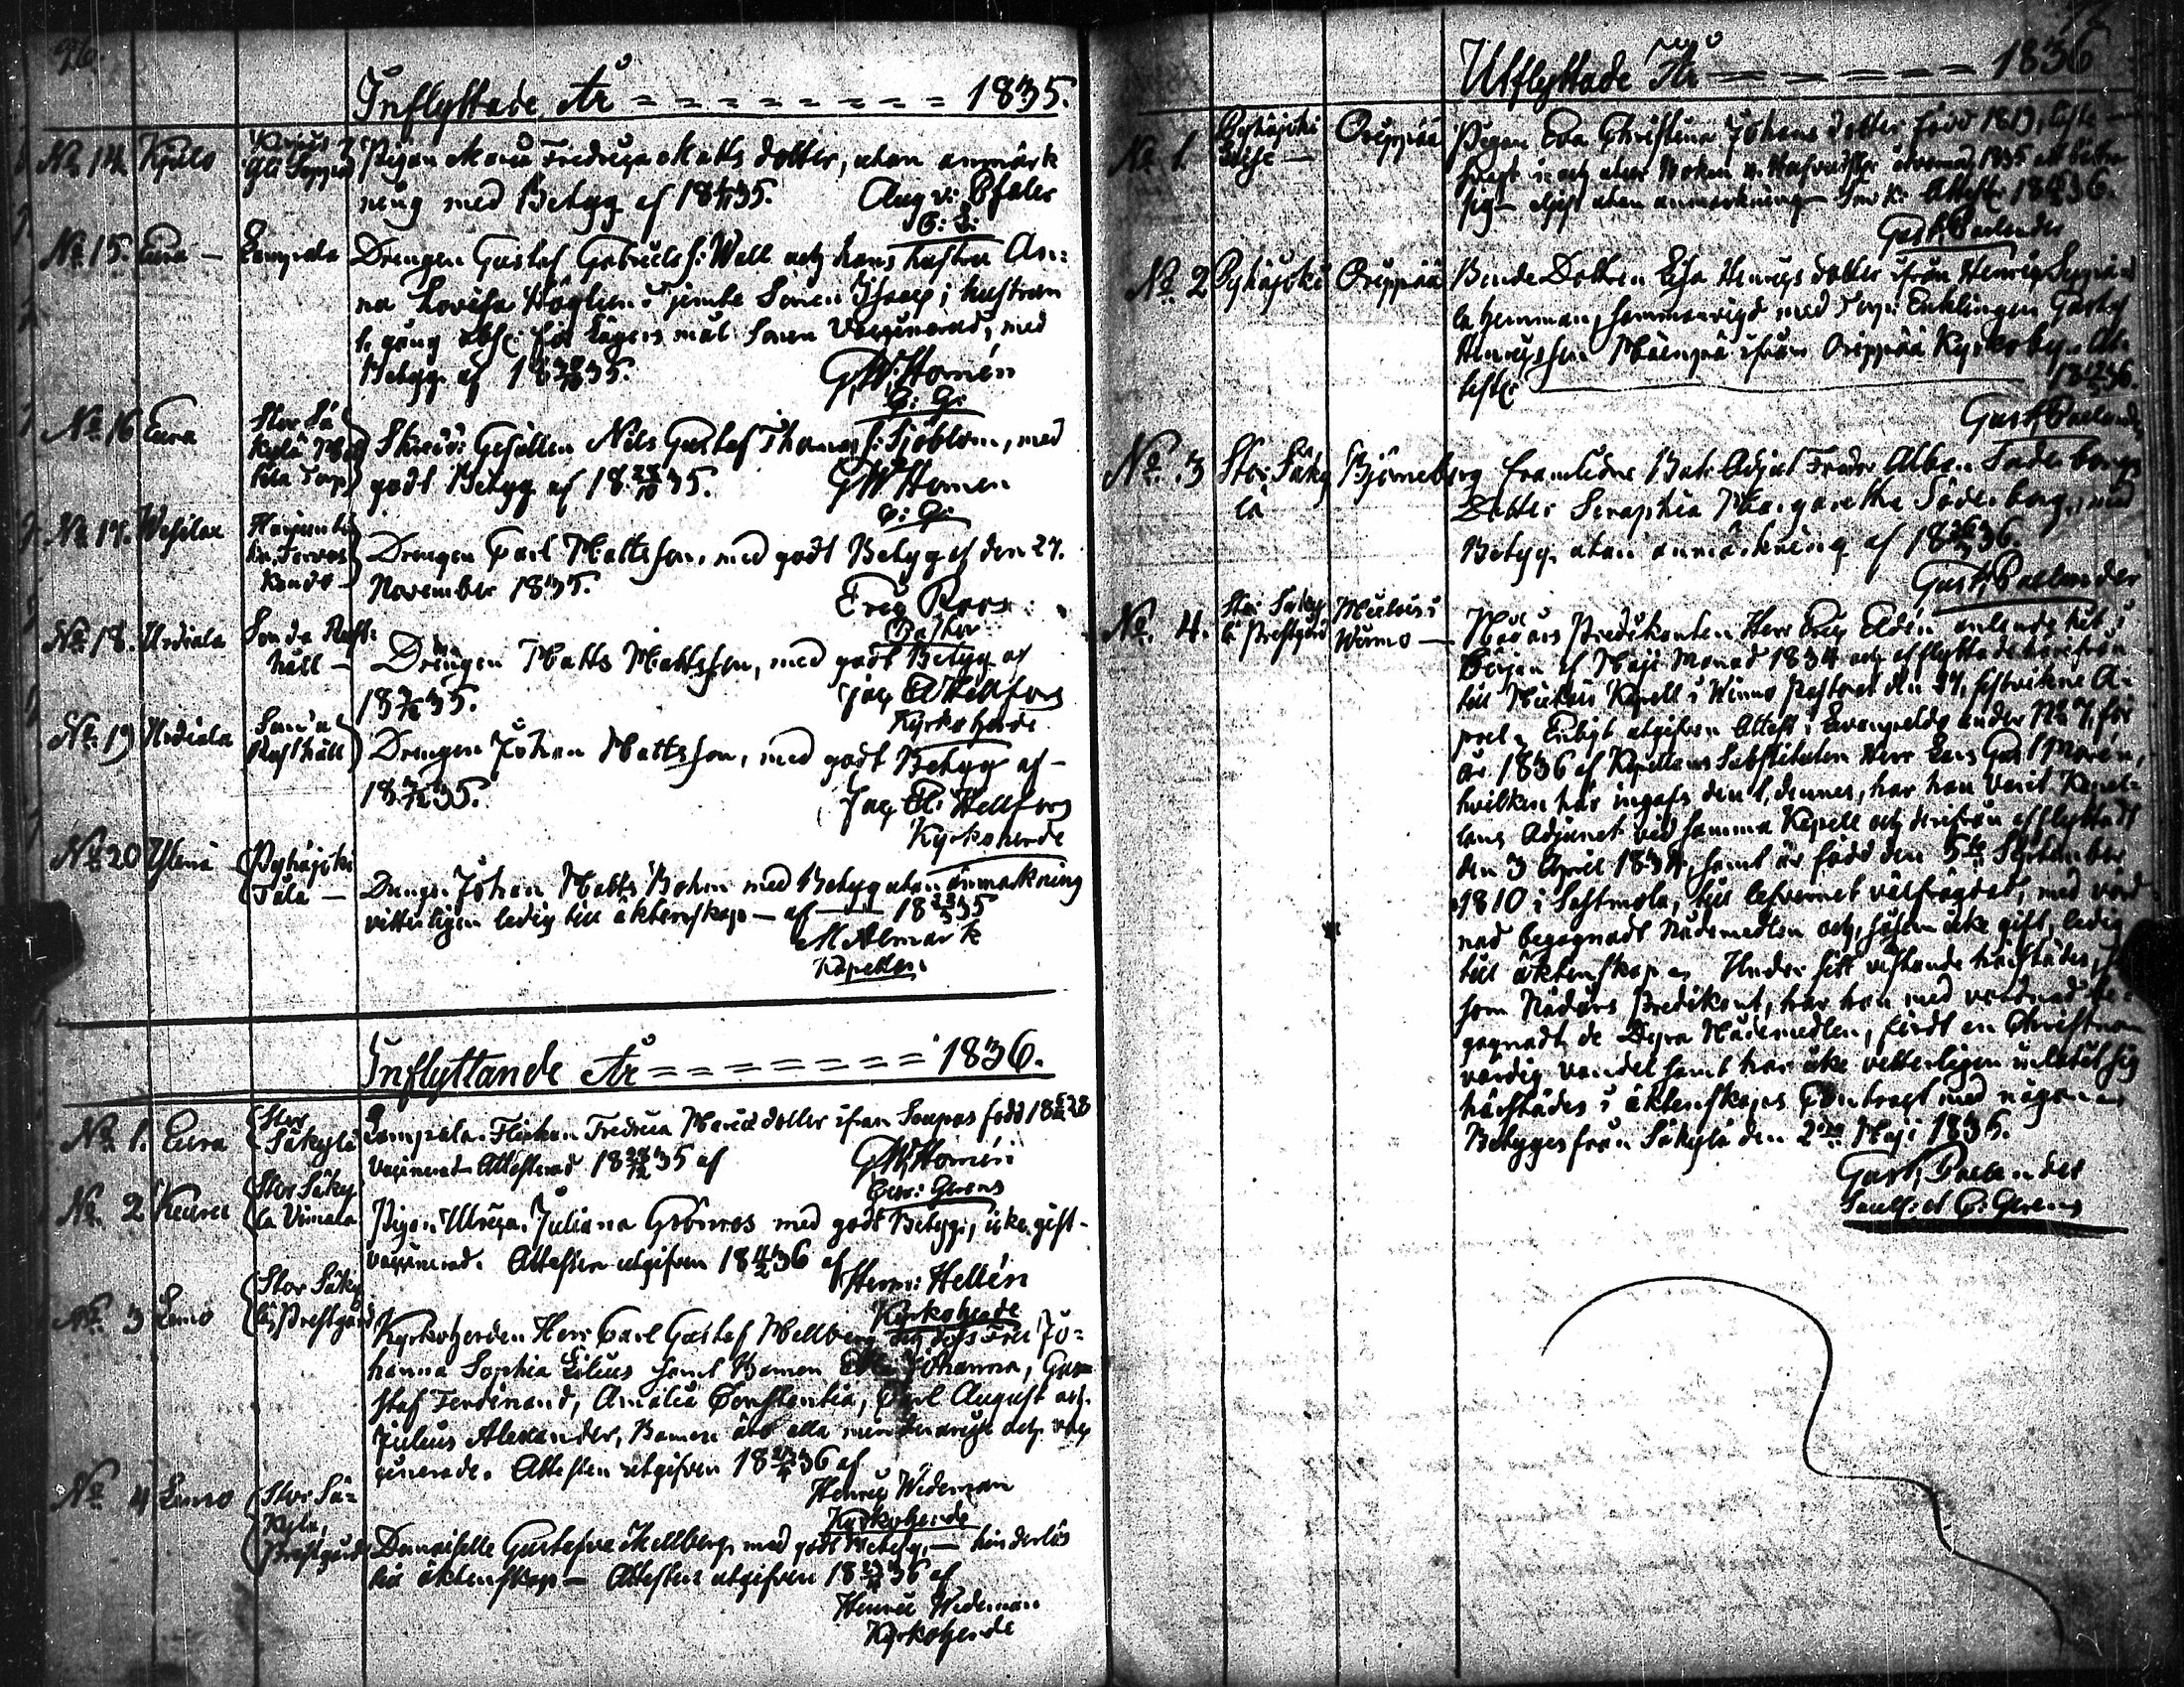 76.
Inflyttade År = = = = = = = = 1835.
No 14 Kjulo
Pigan Maria Fredrica Matts dotter, utan anmärk
ning med Betyg af 1835. Aug v: Pfaler
No 15. Eura — Lampala
Drengen Gustaf Gabriels s: Wall och hans hustru An=
na Lovisa Höglien jemte Sonen Isaac; hustrun
1 gång abs: för Lägersmål Sonen Vaccinerad, med
Betyg af 1835. GW: Homén
C: G:
No 16 Eura Stor Sä
kylä
Skräd: Gesällen Nils Gustaf Thomas s: Sjöblom, med
godt Betyg af 18 28/10 35. GW Homén
C: G:
No 17.
Drengen Carl Mattsson, med godt Betyg af den 27.
November 1835. Eric Roos
Pastor
No 18. Urdiala
håll —
Drengen Matts Mattsson, med godt Betyg af
1835. Jac A Hellfors
Kyrkoherde
No 19 Urdiala
Drengen Johan Mattsson, med godt Betyg af —
1835. Jac A: Hellfors
Kyrkoherde
No 20 Yläne Pyhäjoki
Tala —
Dreng. Johan Matts Bohm med Betyg utan anmärkning
vitterligen ledig till äktenskap — af — 1835
M Almark
Kapellan.
Inflyttande År = = = = = = = 1836.
No 1. Eura Stor
Säkylä
Lampala. Flickan Fredrica Maria dotter ifrån
Vaccinerad Attesterad 18 28/12 35 af GW Homén
Curi: Gerens
No 2 Keuru Stor Säky
lä
Pigan Ulrica Juliana Grönroos med godt Betyg, icke gift —
vaccinerad. Attesten utgifven 1836 af
Herm: Hellén
Kyrkoherde
No 3 Lemo Stor Säky
lä, Prestgård
Kyrkoherden Herr Carl Gustaf Mellberg och dess Fru Jo=
hanna Sophia Lilius samt Barnen Johanna, Gu=
staf Ferdinand, Amalia Constantia, Carl August och
Julius Alexander, Barnen äro alla minderårige och vac
cinerade. Attesten utgifven 1836 af
Henric Wideman
Kyrkoherde
No 4 Lemo Stor Sä=
kylä,
Prestgård
Demoiselle Gustafva Mellberg, med godt Betyg, — hinderlös
till äktenskap — Attesten utgifven 1836 af
Henric Wideman
Kyrkoherde
Utflyttade År = = = = = = 1836
No 1. Pyhäjoki Oripää
Pigan Eva Christina Johans dotter född
sig — utan anmärkning 1836.
Gust. Paelander
No 2 Pyhäjoki Oripää
Bonde Dottren Lisa Henrics dotter ifrån Henric Seppä
lä hemman, med Enklingen Gustaf
Henricsson ifrån Oripää Kyrkoby. At
test: 1836.
Gust. Paelander
No. 3 Stor Säky
lä Björneborg
Framledne Bat: Adjut
Dotter Seraphia Margaretha Söderborg, med
Betyg utan anmärkning af 1836.
Gust. Paelander
No. 4. Stor Säky
lä Prestgård Mietois i
Wirmo —
Nådårs Predikanten Herr Eric Eldén anländ hit i
Början af Maji Månad 1834 och afflyttade härifrån
till Mietois Kapell i Wirmo Pastorat den 27, sistvikne A=
pril. Enligt utgifven Attest i Evangelda under No 7, för
år 1836 af Kapellans Substituten Herr Lars Gust Morén,
hvilken här ingafs den 1, dennes, har han varit Kapel=
lans Adjunct vid samma Kapell och derifrån afflyttadt
den 3 April 1834, samt är född den 5te September
1810 i Sastmola, till lefvernet välfrägdad, med vörd
nad begagnadt Nådemedlen och, såsom icke gift, ledig
till äktenskap. Under sitt vistande härstädes,
som Nådårs Predikant, har han med vördnad be=
gagnadt de Dyra Nådemedlen, fördt en Christnom
värdig vandel samt har icke vetterligen inlåtit sig
härstädes i äktenskaps Contract med någon.
Betygges från Säkylä den 2dra Maji 1836.
Gust, Paelander
Sacell: et C: Gerens